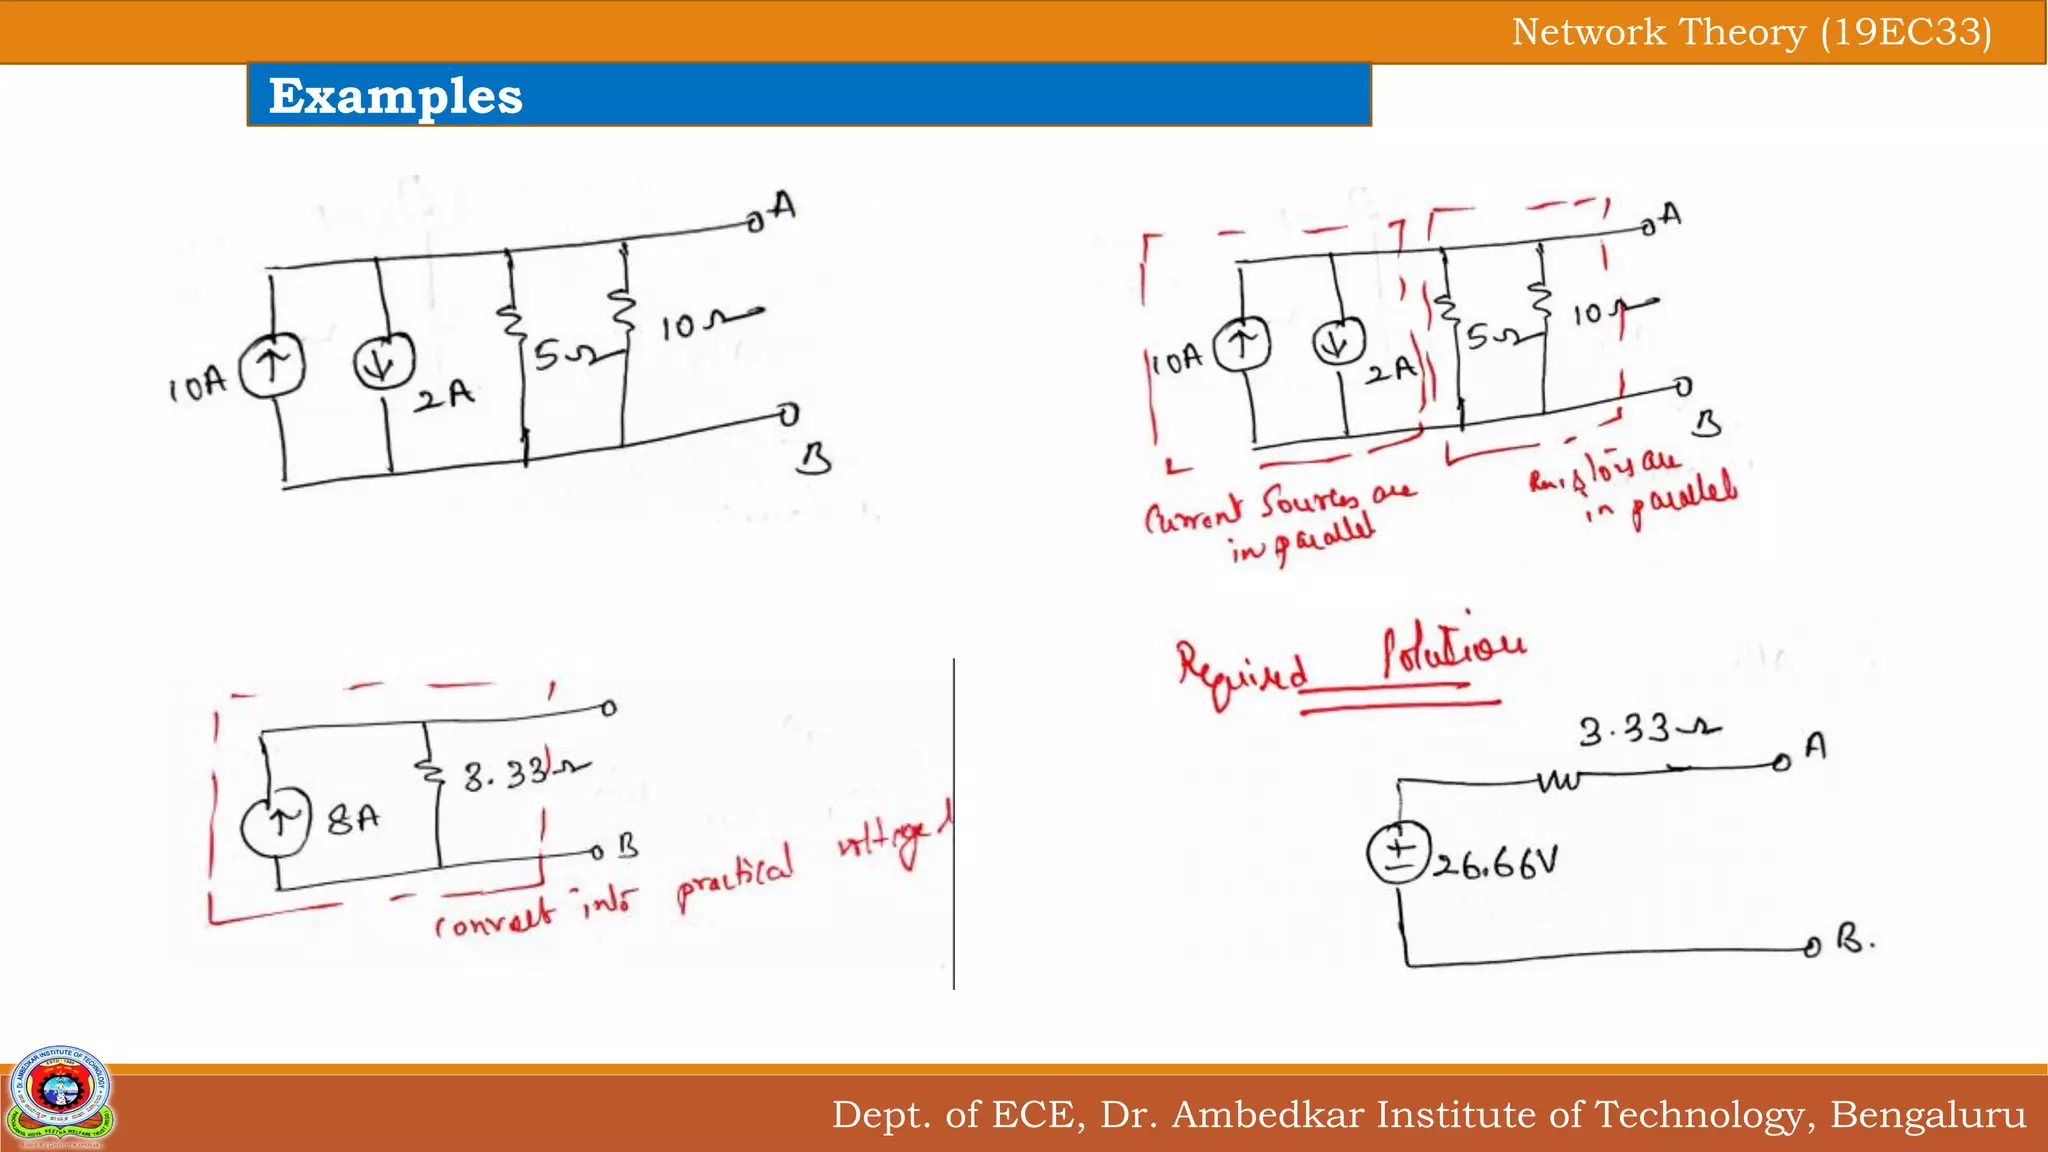 Network Theory (19EC33)
Examples
A
10A
2A
5Ω
10Ω
B
A
10A
2A
5Ω
10Ω
B
Current Sources are
in parallel
Resistors are
in parallel
8A
3.33Ω
B
convert into practical voltage
Required Solution
3.33Ω
A
26.66V
B.
Dept. of ECE, Dr. Ambedkar Institute of Technology, Bengaluru